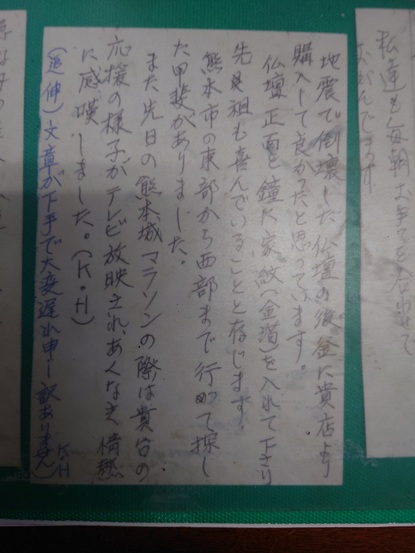 私達も毎朝お手てを合わせて
おがんでます
地震で倒壊した仏壇の後釜に貴店より
購入して良かったと思っています。
仏壇正面と鐘に家紋(金箔)を入れて下さり
先祖も喜んでいることと存じます。
熊本市の東部から西部まで行って探し
た甲斐がありました。
また先日の熊本城マラソンの際は貴台の
応援の様子がテレビ放映され、あくなき情熱
に感嘆しました。(K・H)
(追伸)文章が下手で大変遅れ申し訳ありません)
K・H